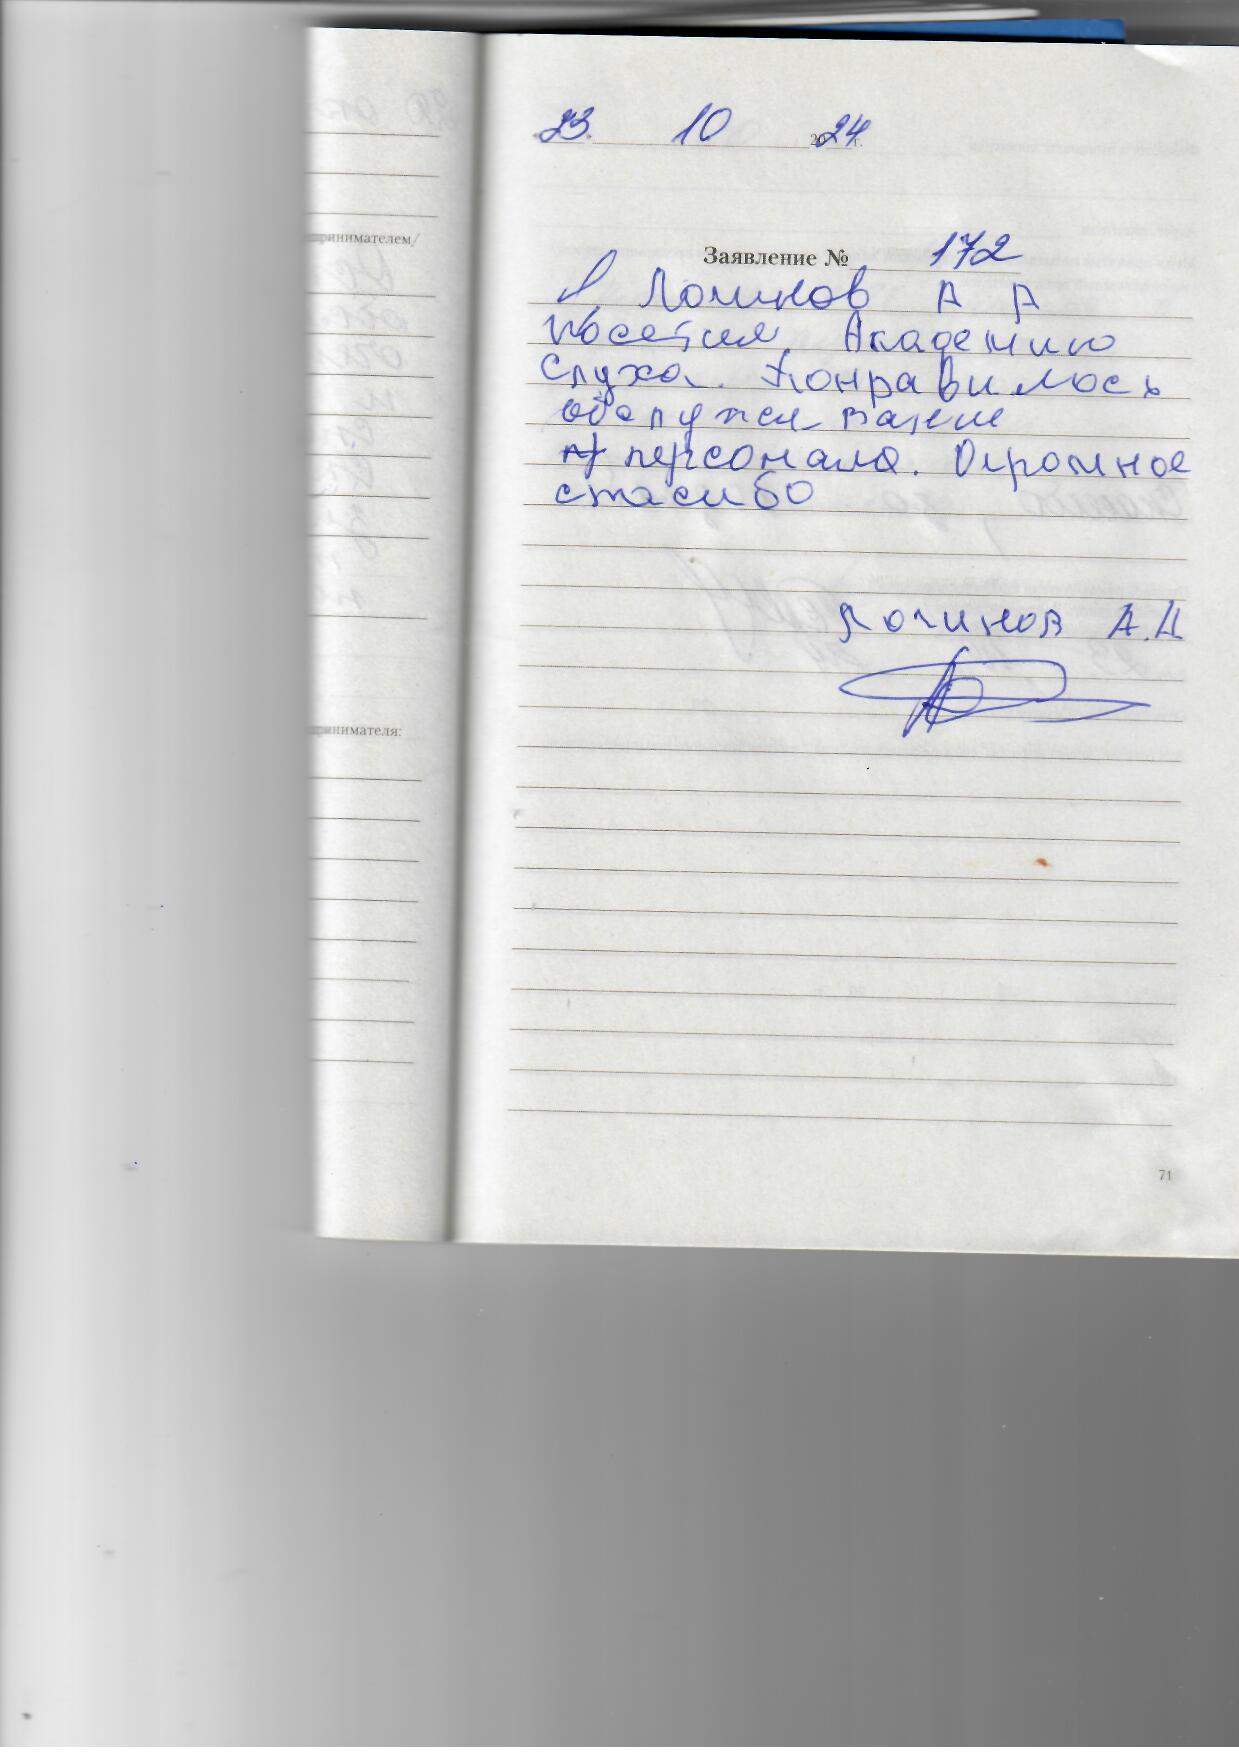 23. 10 2024 г.
Заявление № 172
Я, Логинов А А
посетил Академию
Слуха. Понравилось
обслуживание
персонала. Огромное
спасибо
Логинов А.А
принимателем/
принимателя:
71